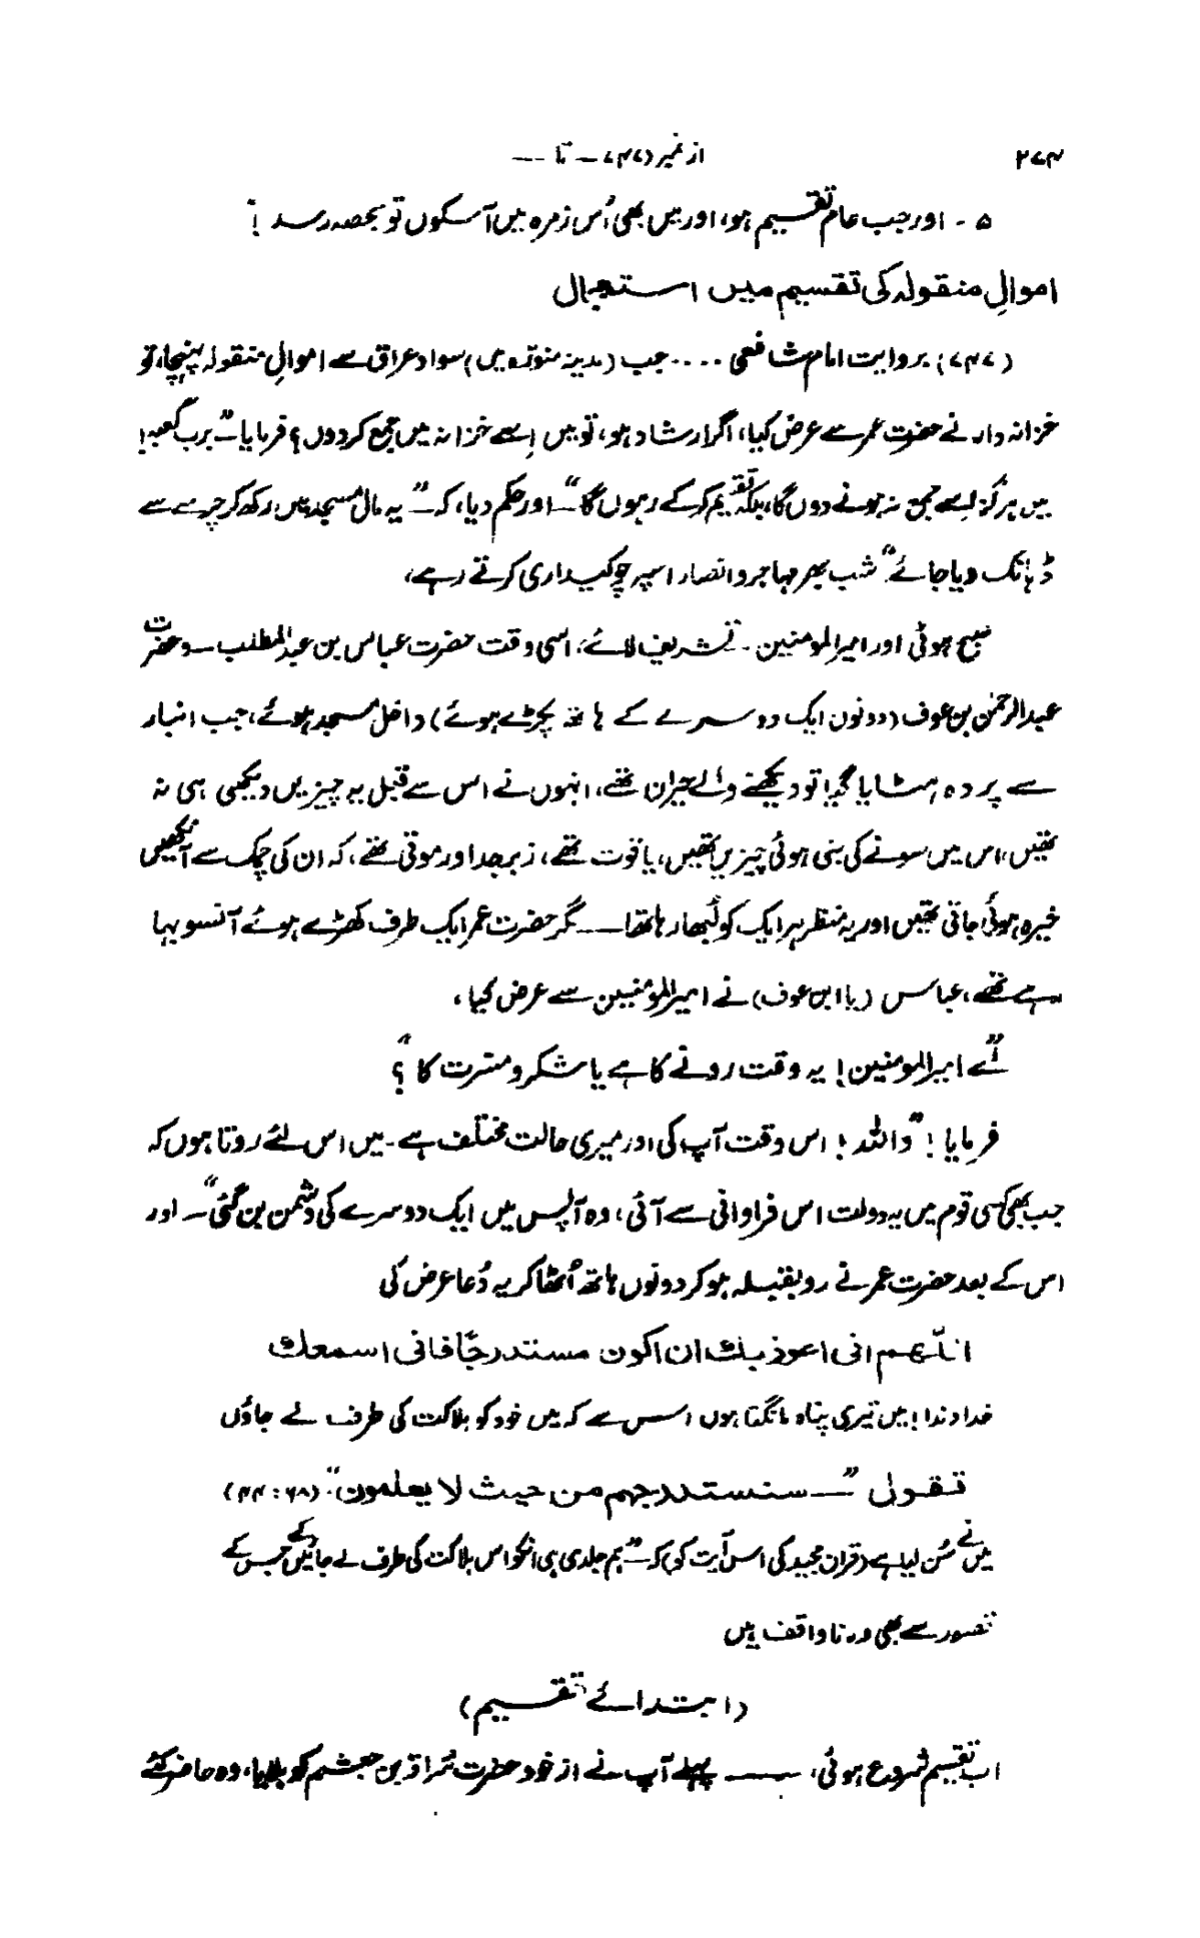 ۲۷۴
از نمبر (۷۴۷) — تا --
۵ - اور جب عام تقسیم ہو، اور میں بھی اُس زمرہ میں آ سکوں تو بحصہ رسد !
اموالِ منقولہ کی تقسیم میں استعجال
(۷۴۷) بروایت امام شافعی .... جب (مدینہ منورہ میں) سواد عراق سے اموالِ منقولہ پہنچا، تو
خزانہ دار نے حضرت عمر سے عرض کیا، اگر ارشاد ہو، تو میں اِسے خزانہ میں جمع کر دوں؟ فرمایا ـ” برب کعبہ!
میں ہرگز اسے جمع نہ ہونے دوں گا، بلکہ تقسیم کر کے رہوں گا“ ـ اور حکم دیا، کہ ـ” یہ مال مسجد میں رکھ کر چرمے سے
ڈہانک دیا جائے“ شب بھر مہاجر و انصار اسپر چوکیداری کرتے رہے،
صبح ہوئی اور امیر المومنین - تشریف لائے، اسی وقت حضرت عباس بن عبد المطلب ـ و حضرت
عبد الرحمٰن بن عوف (دونوں ایک دوسرے کے ہاتھ پکڑے ہوئے) داخل مسجد ہوئے، جب انبار
سے پردہ ہٹایا گیا تو دیکھنے والے حیران تھے، انہوں نے اس سے قبل یہ چیزیں دیکھی ہی نہ
تھیں، اس میں سونے کی بنی ہوئی چیزیں تھیں، یاقوت تھے، زبرجد اور موتی تھے، کہ ان کی چمک سے آنکھیں
خیرہ ہوئی جاتی تھیں اور یہ منظر ہر ایک کو لُبھا رہا تھا ــ مگر حضرت عمر ایک طرف کھڑے ہوئے آنسو بہا
رہے تھے، عباس (یا ابن عوف) نے امیر المومنین سے عرض کیا،
”اے امیر المومنین! یہ وقت رونے کا ہے یا شکر و مسرت کا ؟“
فرمایا! ”واللہ! اس وقت آپ کی اور میری حالت مختلف ہے - میں اس لئے روتا ہوں کہ
جب بھی کسی قوم میں یہ دولت اس فراوانی سے آئی، وہ آپس میں ایک دوسرے کی دشمن بن گئی“ ـ اور
اس کے بعد حضرت عمر نے روبقبلہ ہو کر دونوں ہاتھ اُٹھا کر یہ دُعا عرض کی
اللّٰهم انی اعوذ بك ان اکون مستدرجًا فانی اسمعك
خداوندا! میں تیری پناہ مانگتا ہوں اس سے کہ میں خود کو ہلاکت کی طرف لے جاؤں
تقول ”ــ سنستدرجهم من حیث لا یعلمون“ (۶۸:۴۴)
میں نے سُن لیا ہے (قرآن مجید کی اس آیت کو) کہ ـ” ہم جلدی ہی انکو اس ہلاکت کی طرف لے جائیں گے جس کے
تصور سے بھی وہ ناواقف ہیں
(ابتدائے تقسیم)
اب تقسیم شروع ہوئی، ــ پہلے آپ نے از خود حضرت سُراقہ بن جعشم کو بلایا، وہ حاضر کئے